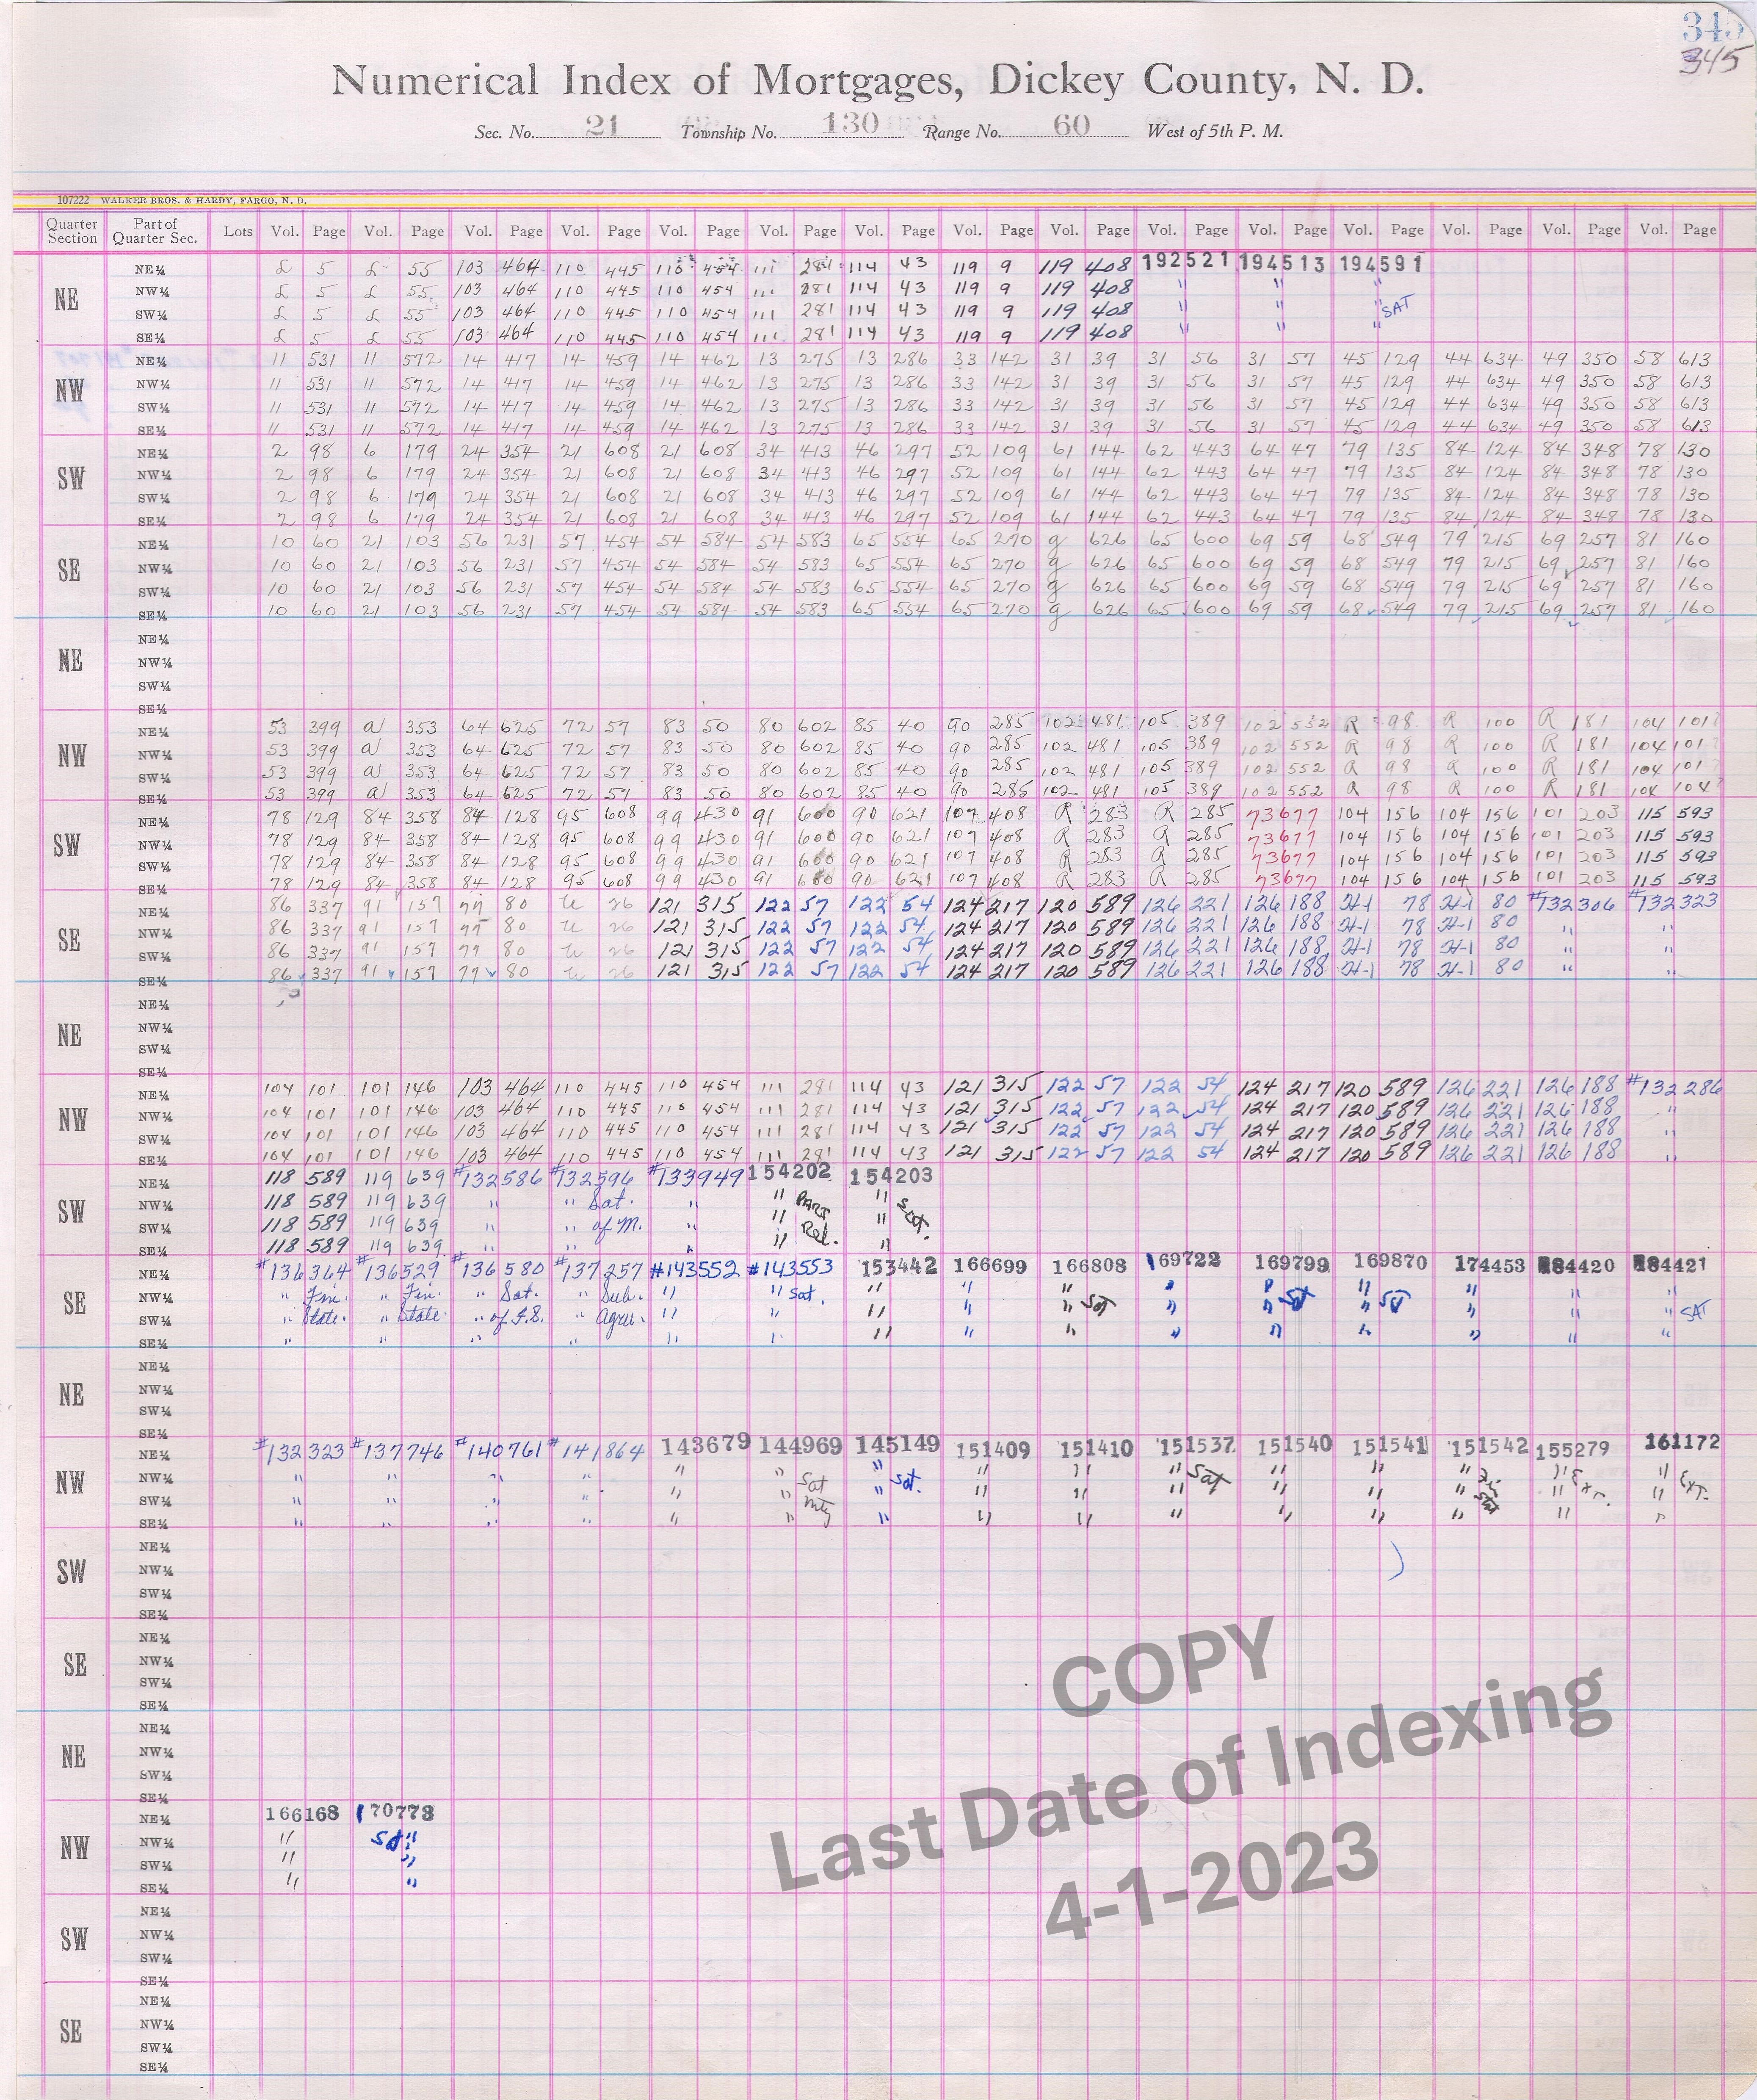 345
345
Numerical Index of Mortgages, Dickey County, N. D.
Sec. No. 21 Township No. 130 Range No. 60 West of 5th P. M.
107222 WALKER BROS. & HARDY, FARGO, N. D.
Quarter Section Part of Quarter Sec. Lots Vol. Page Vol. Page Vol. Page Vol. Page Vol. Page Vol. Page Vol. Page Vol. Page Vol. Page Vol. Page Vol. Page Vol. Page Vol. Page Vol. Page Vol. Page
NE
NE¼ £ 5 £ 55 103 464 110 445 110 454 111 281 114 43 119 9 119 408 192521 194513 194591
NW¼ £ 5 £ 55 103 464 110 445 110 454 111 281 114 43 119 9 119 408 " " "
SW¼ £ 5 £ 55 103 464 110 445 110 454 111 281 114 43 119 9 119 408 " " " SAT
SE¼ £ 5 £ 55 103 464 110 445 110 454 111 281 114 43 119 9 119 408 " " "
NW
NE¼ 11 531 11 572 14 417 14 459 14 462 13 275 13 286 33 142 31 39 31 56 31 57 45 129 44 634 49 350 58 613
NW¼ 11 531 11 572 14 417 14 459 14 462 13 275 13 286 33 142 31 39 31 56 31 57 45 129 44 634 49 350 58 613
SW¼ 11 531 11 572 14 417 14 459 14 462 13 275 13 286 33 142 31 39 31 56 31 57 45 129 44 634 49 350 58 613
SE¼ 11 531 11 572 14 417 14 459 14 462 13 275 13 286 33 142 31 39 31 56 31 57 45 129 44 634 49 350 58 613
SW
NE¼ 2 98 6 179 24 354 21 608 21 608 34 413 46 297 52 109 61 144 62 443 64 47 79 135 84 124 84 348 78 130
NW¼ 2 98 6 179 24 354 21 608 21 608 34 413 46 297 52 109 61 144 62 443 64 47 79 135 84 124 84 348 78 130
SW¼ 2 98 6 179 24 354 21 608 21 608 34 413 46 297 52 109 61 144 62 443 64 47 79 135 84 124 84 348 78 130
SE¼ 2 98 6 179 24 354 21 608 21 608 34 413 46 297 52 109 61 144 62 443 64 47 79 135 84 124 84 348 78 130
SE
NE¼ 10 60 21 103 56 231 57 454 54 584 54 583 65 554 65 270 g 626 65 600 69 59 68 549 79 215 69 257 81 160
NW¼ 10 60 21 103 56 231 57 454 54 584 54 583 65 554 65 270 g 626 65 600 69 59 68 549 79 215 69 257 81 160
SW¼ 10 60 21 103 56 231 57 454 54 584 54 583 65 554 65 270 g 626 65 600 69 59 68 549 79 215 69 257 81 160
SE¼ 10 60 21 103 56 231 57 454 54 584 54 583 65 554 65 270 g 626 65 600 69 59 68 549 79 215 69 257 81 160
NE
NE¼
NW¼
SW¼
SE¼
NW
NE¼ 53 399 a 353 64 625 72 57 83 50 80 602 85 40 90 285 102 481 105 389 102 552 R 98 R 100 R 181 104 101
NW¼ 53 399 a 353 64 625 72 57 83 50 80 602 85 40 90 285 102 481 105 389 102 552 R 98 R 100 R 181 104 101
SW¼ 53 399 a 353 64 625 72 57 83 50 80 602 85 40 90 285 102 481 105 389 102 552 R 98 R 100 R 181 104 101
SE¼ 53 399 a 353 64 625 72 57 83 50 80 602 85 40 90 285 102 481 105 389 102 552 R 98 R 100 R 181 104 104
SW
NE¼ 78 129 84 358 84 128 95 608 99 430 91 600 90 621 107 408 R 283 R 285 73677 104 156 104 156 101 203 115 593
NW¼ 78 129 84 358 84 128 95 608 99 430 91 600 90 621 107 408 R 283 R 285 73677 104 156 104 156 101 203 115 593
SW¼ 78 129 84 358 84 128 95 608 99 430 91 600 90 621 107 408 R 283 R 285 73677 104 156 104 156 101 203 115 593
SE¼ 78 129 84 358 84 128 95 608 99 430 91 600 90 621 107 408 R 283 R 285 73677 104 156 104 156 101 203 115 593
SE
NE¼ 86 337 91 157 77 80 26 121 315 122 57 122 54 124 217 120 589 126 221 126 188 H-1 78 H-1 80 #132306 #132323
NW¼ 86 337 91 157 77 80 26 121 315 122 57 122 54 124 217 120 589 126 221 126 188 H-1 78 H-1 80 " "
SW¼ 86 337 91 157 77 80 26 121 315 122 57 122 54 124 217 120 589 126 221 126 188 H-1 78 H-1 80 " "
SE¼ 86 337 91 157 77 80 26 121 315 122 57 122 54 124 217 120 589 126 221 126 188 H-1 78 H-1 80 " "
NE
NE¼
NW¼
SW¼
SE¼
NW
NE¼ 104 101 101 146 103 464 110 445 110 454 111 281 114 43 121 315 122 57 122 54 124 217 120 589 126 221 126 188 #132286
NW¼ 104 101 101 146 103 464 110 445 110 454 111 281 114 43 121 315 122 57 122 54 124 217 120 589 126 221 126 188 "
SW¼ 104 101 101 146 103 464 110 445 110 454 111 281 114 43 121 315 122 57 122 54 124 217 120 589 126 221 126 188 "
SE¼ 104 101 101 146 103 464 110 445 110 454 111 281 114 43 121 315 122 57 122 54 124 217 120 589 126 221 126 188 "
SW
NE¼ 118 589 119 639 #132586 #132596 #133949 154202 154203
NW¼ 118 589 119 639 " " Sat. " " PART " Sat.
SW¼ 118 589 119 639 " " of M. " " Rel. "
SE¼ 118 589 119 639 " " " " "
SE
NE¼ #136364 #136529 #136580 #137257 #143552 #143553 153442 166699 166808 169722 169799 169870 174453 184420 184421
NW¼ " Fin. " Fin. " Sat. " Sub. " " Sat. " " " " " " " " "
SW¼ " State. " State. " of F.S. " Agree. " " " " " Sat " " Sat " Sat " " " SAT
SE¼ " " " " " " " " " " " " " " "
NE
NE¼
NW¼
SW¼
SE¼
NW
NE¼ #132323 #137746 #140761 #141864 143679 144969 145149 151409 151410 151537 151540 151541 151542 155279 161172
NW¼ " " " " " " Sat " Sat. " " " Sat " " " " Ext. " Ext.
SW¼ " " " " " " Mtg " " " " " " " " "
SE¼ " " " " " " " " " " " " " " "
SW
NE¼
NW¼
SW¼
SE¼
SE
NE¼
NW¼
SW¼
SE¼
NE
NE¼
NW¼
SW¼
SE¼
NW
NE¼ 166168 170773
NW¼ " Sat "
SW¼ " "
SE¼ " "
SW
NE¼
NW¼
SW¼
SE¼
SE
NE¼
NW¼
SW¼
SE¼
COPY
Last Date of Indexing
4-1-2023